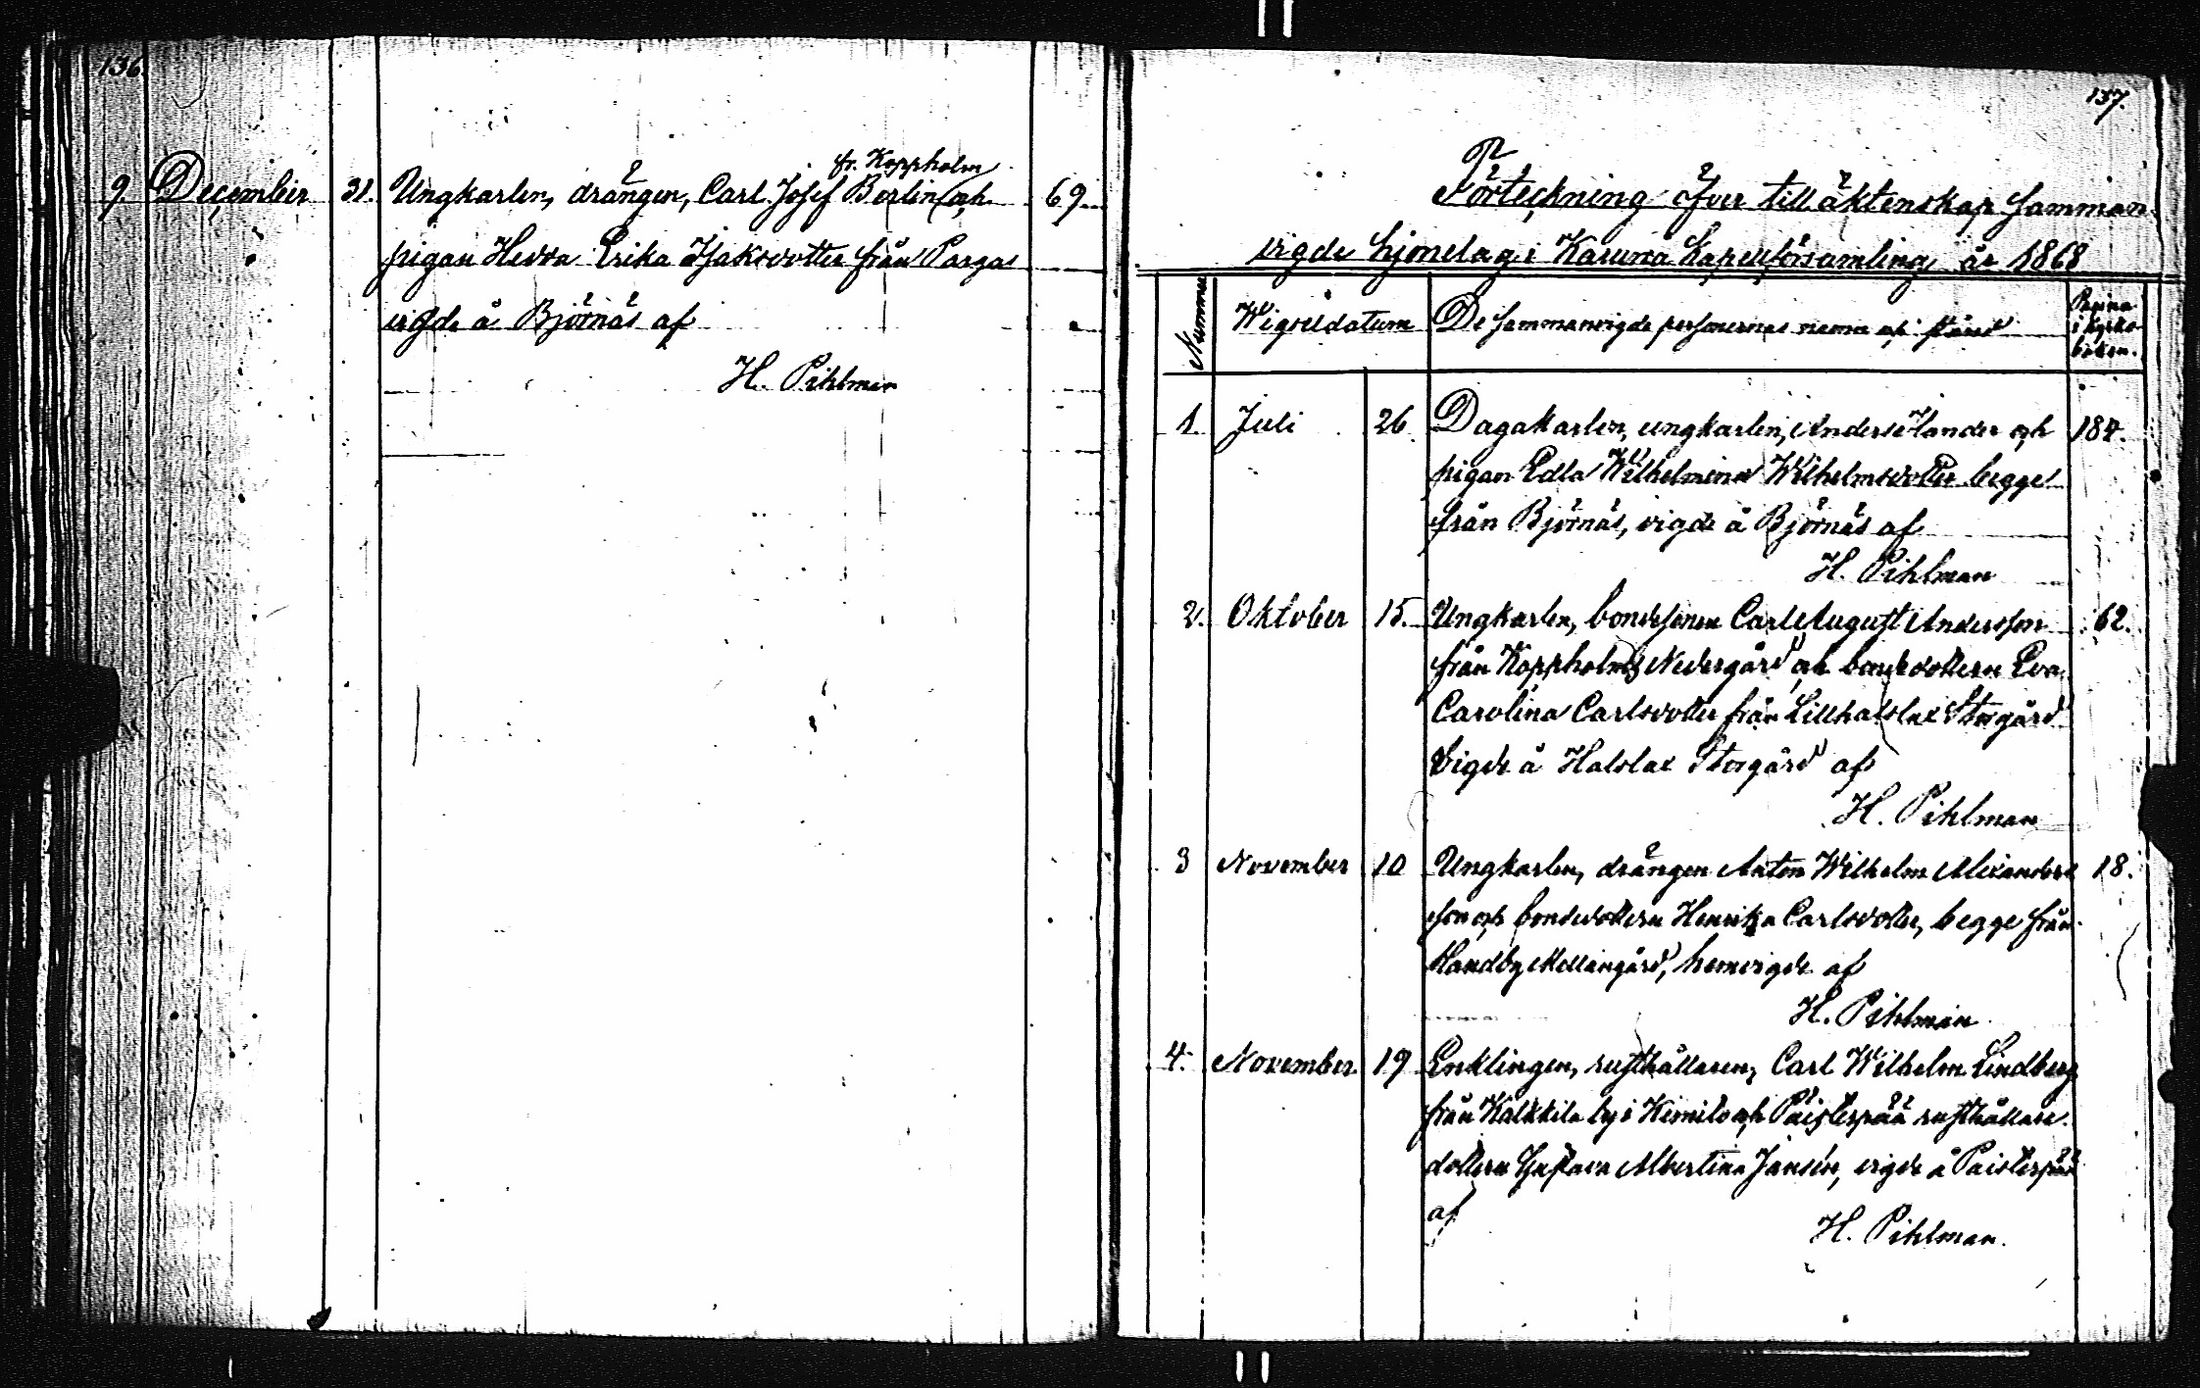 136.
fr. Koppholm
9. December 31. Ungkarlen, drängen, Carl Josef Berlin och 69
pigan Hedda Erika Isaksdotter från Pargas
vigde å Björnäs af
H. Pihlman
137.
Förteckning öfver till äktenskap samman
vigde hjonelag i Karuna Kapellförsamling år 1868
Nummer Wigseldatum De sammanvigde personernas namn och stånd Pagina
i kyrko
boken.
1. Juli 26. Dagakarlen, ungkarlen, Anders Elander och 184.
pigan Edla Wilhelmina Wilhelmsdotter begge
från Björnäs, vigde å Björnäs af
H. Pihlman
2. Oktober 15. Ungkarlen, bondesonen Carl August Andersson 62.
från Koppholms Nedergård och bondedottern Eva
Carolina Carlsdotter från Lillhalslax Storgård
Vigde å Halslax Storgård af
H. Pihlman
3 November 10 Ungkarlen, drängen Anton Wilhelm Alexanders 18.
son och bondedottern Henrika Carlsdotter, begge från
Mellangård, hemvigde af
H. Pihlman
4. November 19 Enklingen, rusthållaren, Carl Wilhelm Lindberg
från Kalkkila by i Kimito och Päisterpää rusthållare
dottern Gustava Albertina Jansén, vigde å Päisterpää
af
H. Pihlman.